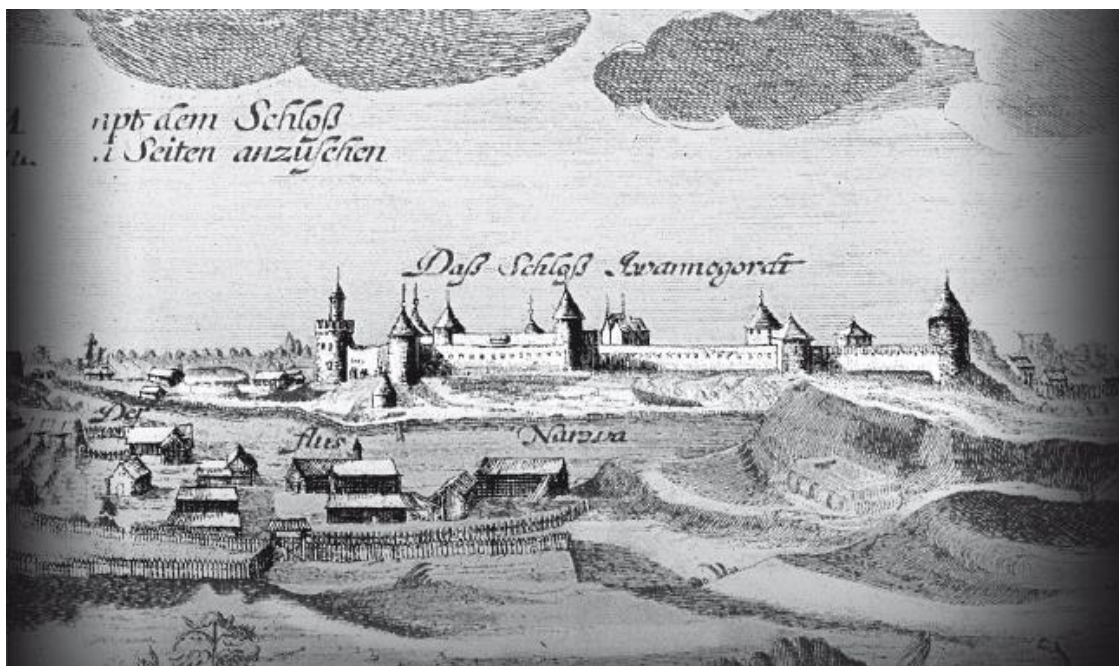 dem Schloß
Seiten anzusehen
Daß Schloß Iwannogordt
Der
flus
Narwa